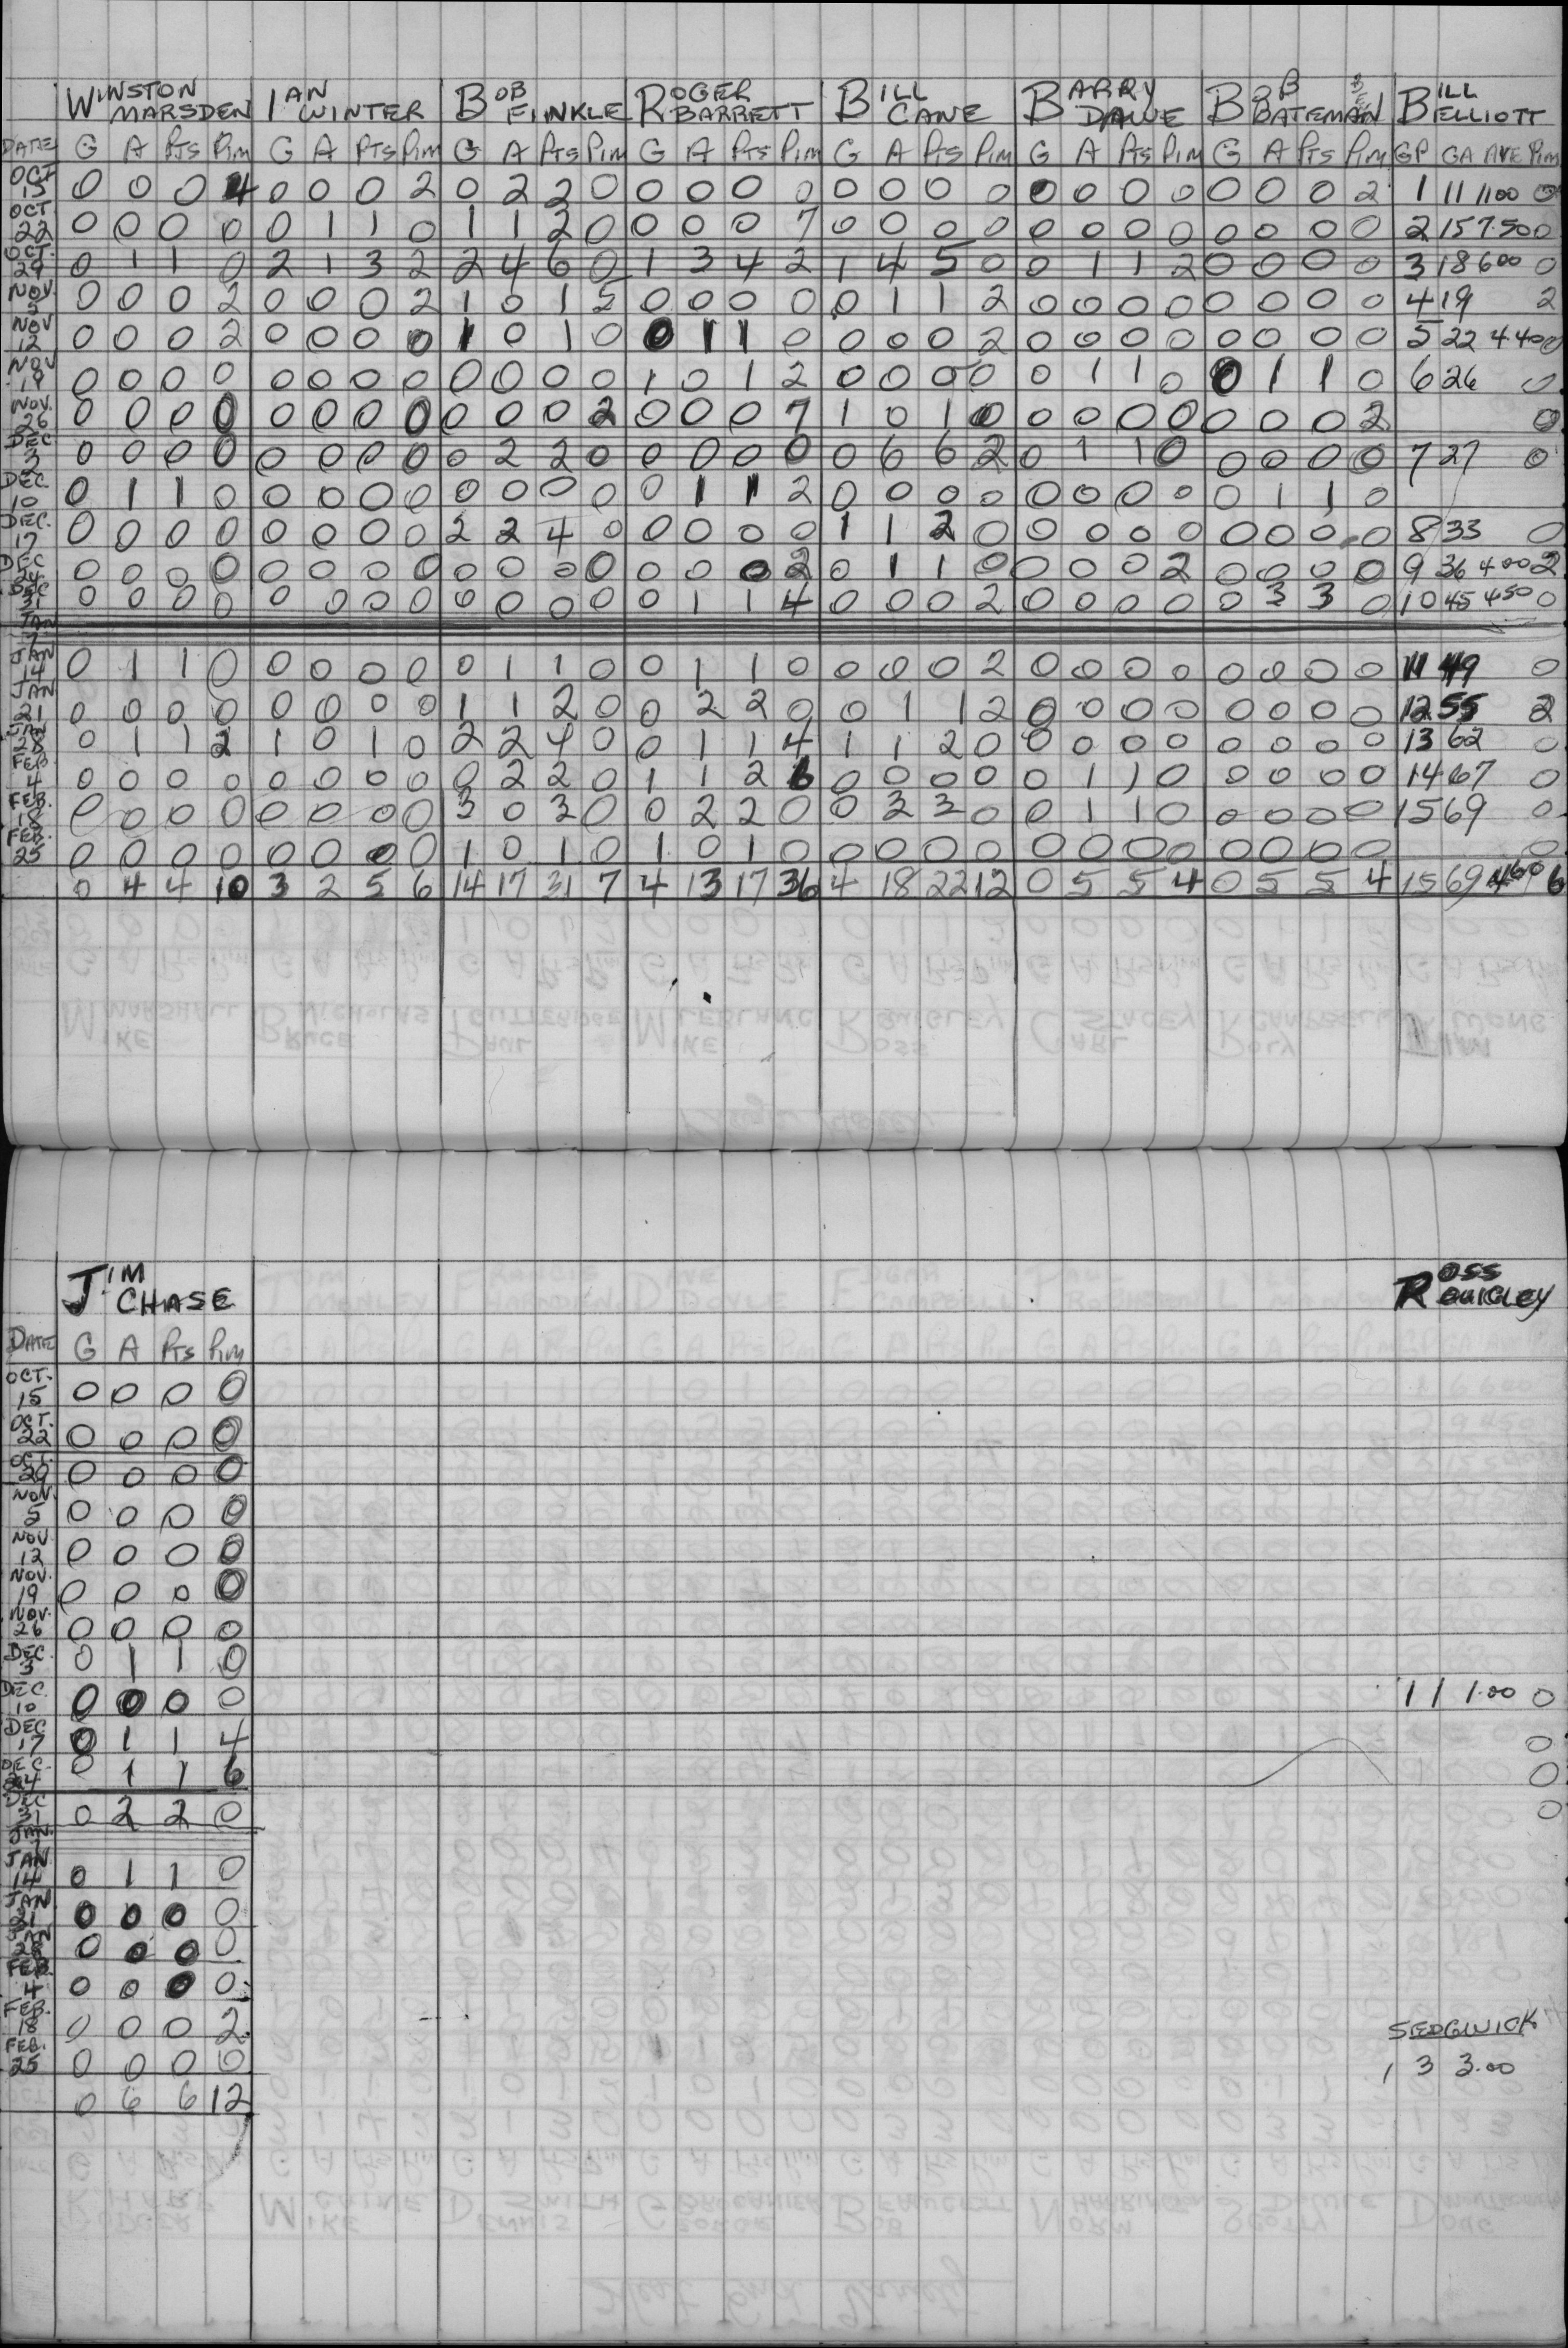 WINSTON MARSDEN IAN WINTER BOB FINKLE ROGER BARRETT BILL CANE BARRY DAWE BOB BATEMAN BILL ELLIOTT
DATE G A Pts Pim G A Pts Pim G A Pts Pim G A Pts Pim G A Pts Pim G A Pts Pim G A Pts Pim GP GA AVE Pim
OCT 15 0 0 0 4 0 0 0 2 0 2 2 0 0 0 0 0 0 0 0 0 0 0 0 0 0 0 0 2 1 11 11.00 0
OCT 22 0 0 0 0 0 1 1 0 1 1 2 0 0 0 0 7 0 0 0 0 0 0 0 0 0 0 0 0 2 15 7.50 0
OCT. 29 0 1 1 0 2 1 3 2 2 4 6 0 1 3 4 2 1 4 5 0 0 1 1 2 0 0 0 0 3 18 600 0
NOV. 5 0 0 0 2 0 0 0 2 1 0 1 5 0 0 0 0 0 1 1 2 0 0 0 0 0 0 0 0 4 19 2
NOV 12 0 0 0 2 0 0 0 0 1 0 1 0 0 1 1 0 0 0 0 2 0 0 0 0 0 0 0 0 5 22 4 40 0
NOV 19 0 0 0 0 0 0 0 0 0 0 0 0 1 0 1 2 0 0 0 0 0 1 1 0 0 1 1 0 6 26 0
NOV. 26 0 0 0 0 0 0 0 0 0 0 0 2 0 0 0 7 1 0 1 0 0 0 0 0 0 0 0 2 0
DEC 3 0 0 0 0 0 0 0 0 0 2 2 0 0 0 0 0 0 6 6 2 0 1 1 0 0 0 0 0 7 27 0
DEC. 10 0 1 1 0 0 0 0 0 0 0 0 0 0 1 1 2 0 0 0 0 0 0 0 0 0 1 1 0
DEC. 17 0 0 0 0 0 0 0 0 2 2 4 0 0 0 0 0 1 1 2 0 0 0 0 0 0 0 0 0 8 33 0
DEC 24 0 0 0 0 0 0 0 0 0 0 0 0 0 0 0 2 0 1 1 0 0 0 0 2 0 0 0 0 9 36 4 00 2
DEC 31 0 0 0 0 0 0 0 0 0 0 0 0 0 1 1 4 0 0 0 2 0 0 0 0 0 3 3 0 10 45 450 0
JAN 7
JAN 14 0 1 1 0 0 0 0 0 0 1 1 0 0 1 1 0 0 0 0 2 0 0 0 0 0 0 0 0 11 49 0
JAN 21 0 0 0 0 0 0 0 0 1 1 2 0 0 2 2 0 0 1 1 2 0 0 0 0 0 0 0 0 12 55 2
JAN 28 0 1 1 2 1 0 1 0 2 2 4 0 0 1 1 4 1 1 2 0 0 0 0 0 0 0 0 0 13 62 0
FEB 4 0 0 0 0 0 0 0 0 0 2 2 0 1 1 2 6 0 0 0 0 0 1 1 0 0 0 0 0 14 67 0
FEB. 18 0 0 0 0 0 0 0 0 3 0 3 0 0 2 2 0 0 3 3 0 0 1 1 0 0 0 0 0 15 69 0
FEB. 25 0 0 0 0 0 0 0 0 1 0 1 0 1 0 1 0 0 0 0 0 0 0 0 0 0 0 0 0 0
0 4 4 10 3 2 5 6 14 17 31 7 4 13 17 36 4 18 22 12 0 5 5 4 0 5 5 4 15 69 460 6
JIM CHASE ROSS QUIGLEY
DATE G A Pts Pim
OCT. 15 0 0 0 0
OCT. 22 0 0 0 0
OCT. 29 0 0 0 0
NOV. 5 0 0 0 0
NOV 12 0 0 0 0
NOV. 19 0 0 0 0
NOV. 26 0 0 0 0
DEC. 3 0 1 1 0
DEC. 10 0 0 0 0 1 1 1.00 0
DEC 17 0 1 1 4 0
DEC. 24 0 1 1 6 0
DEC 31 0 2 2 0 0
JAN.
JAN 14 0 1 1 0
JAN 21 0 0 0 0
JAN 28 0 0 0 0
FEB. 4 0 0 0 0
FEB. 18 0 0 0 2 SEDGWICK
FEB. 25 0 0 0 0 1 3 3.00
0 6 6 12